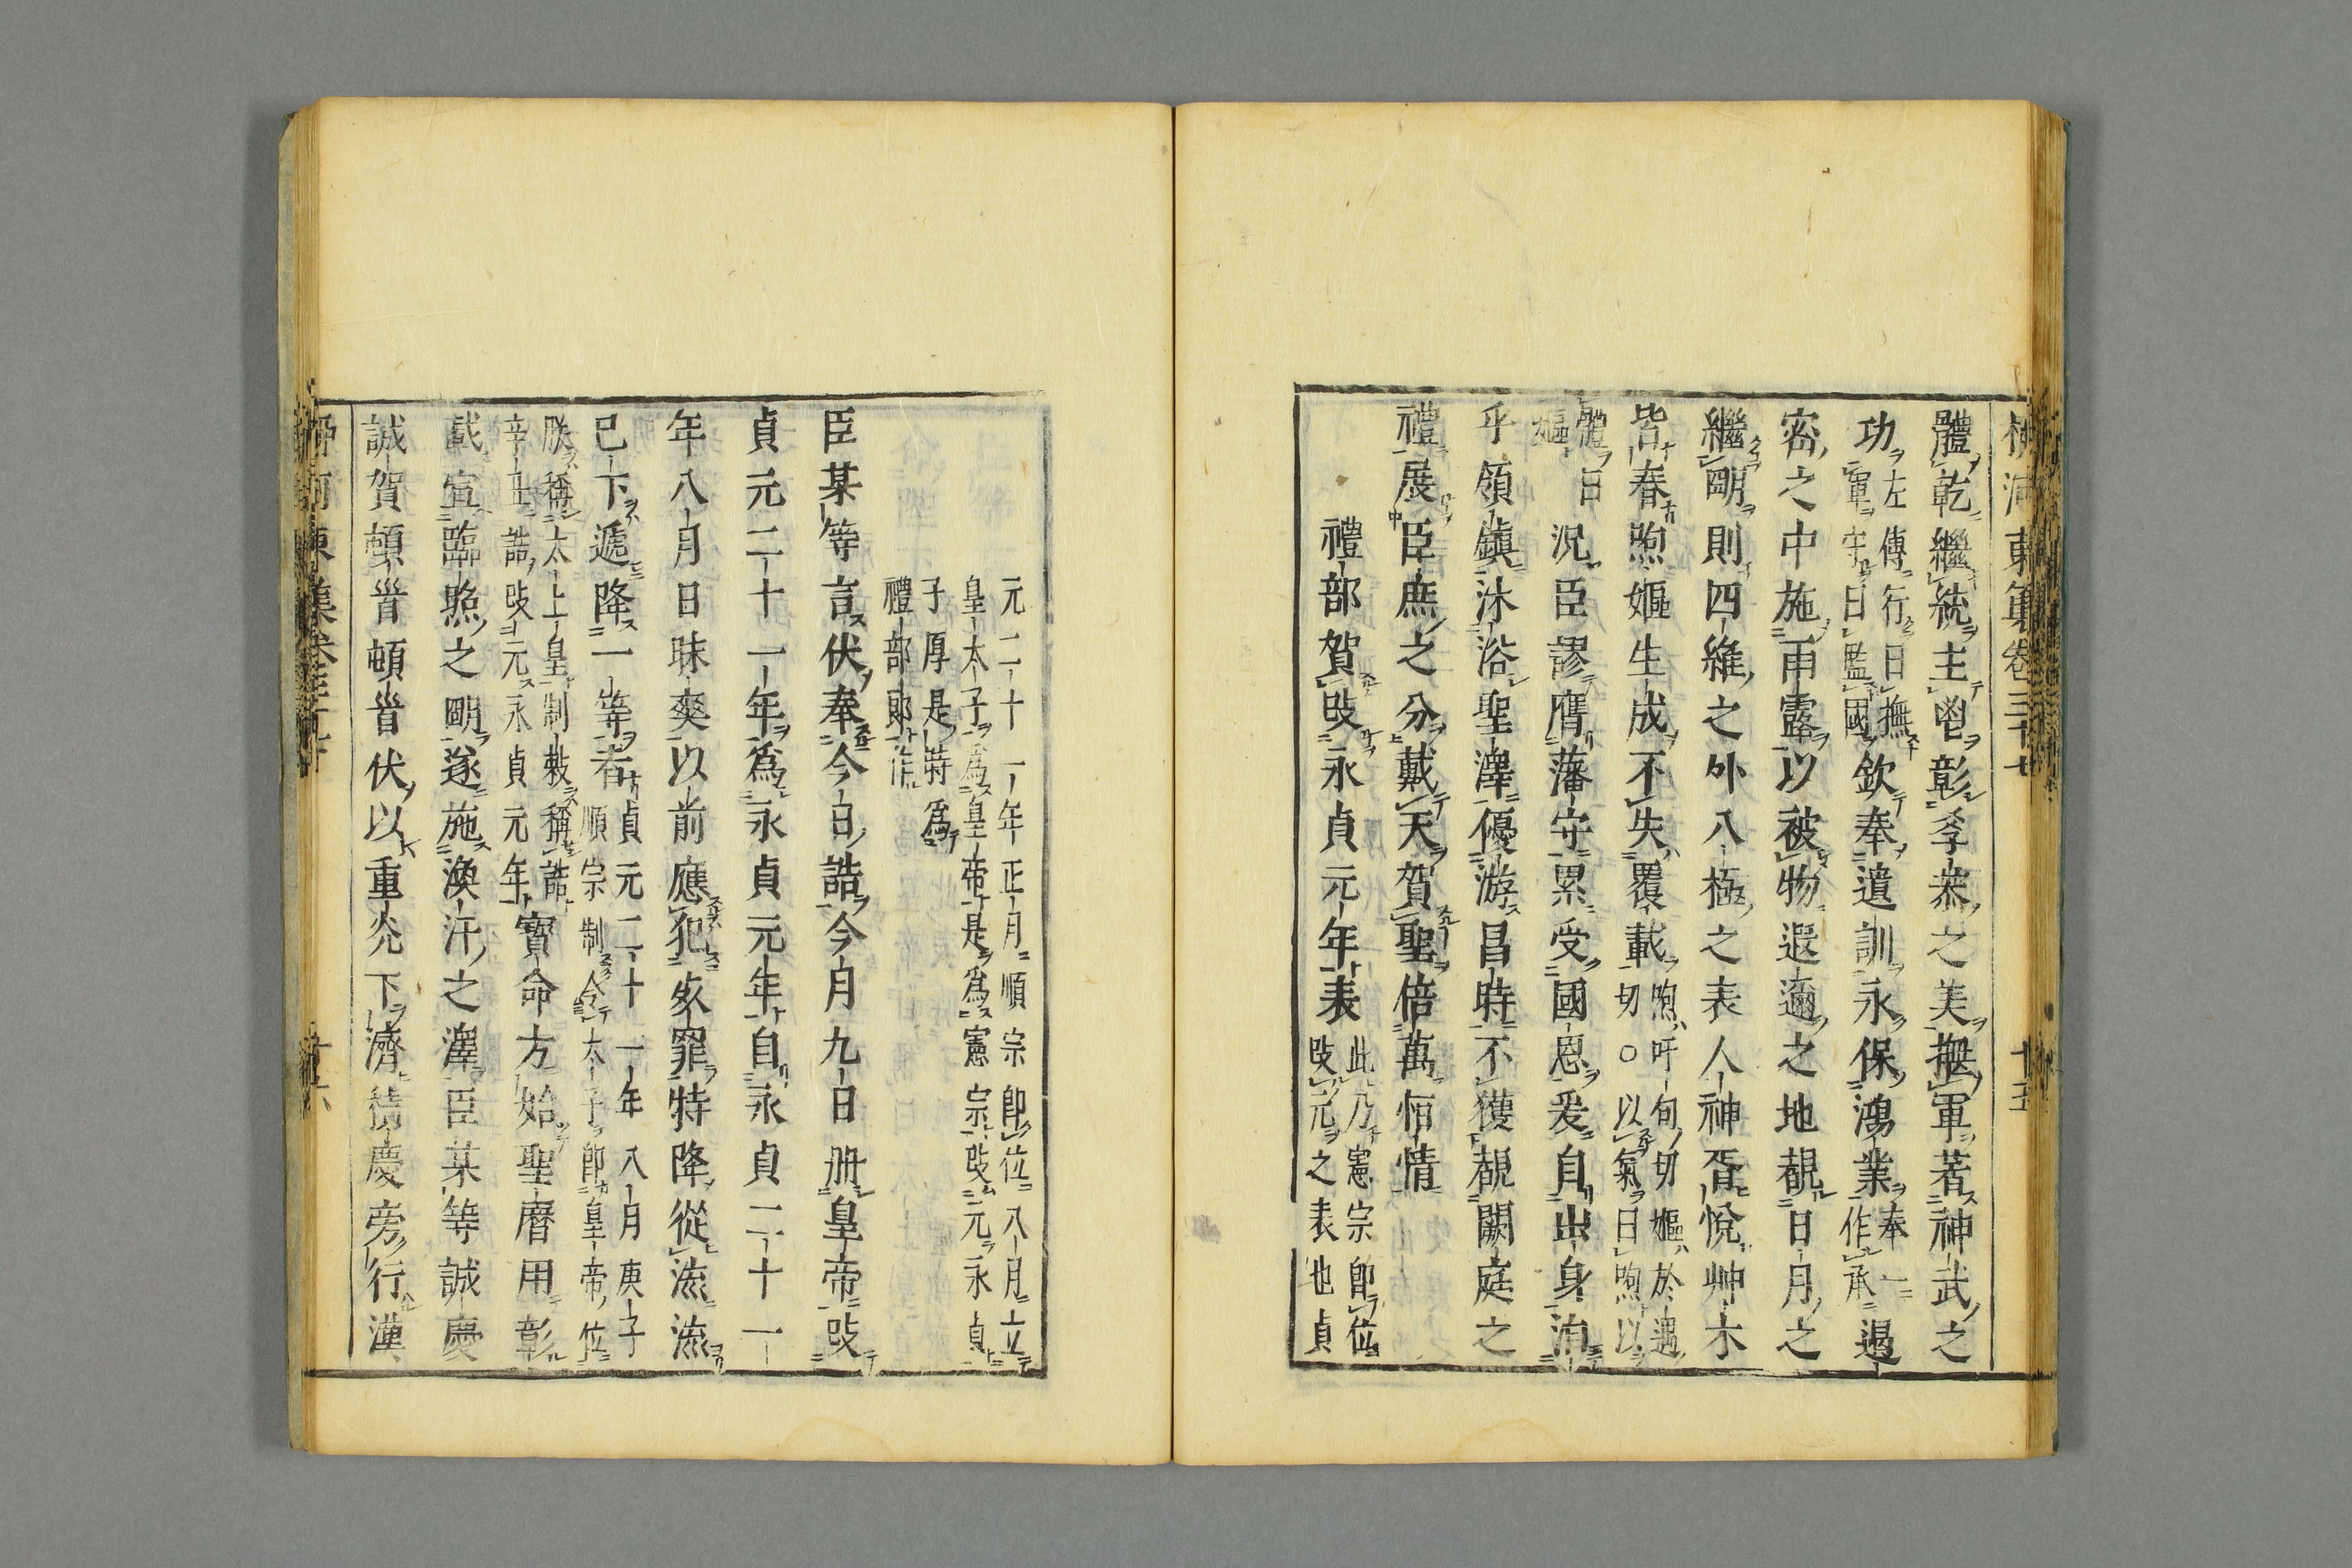 柳河東集卷三十七
十五
體乾繼統主鬯彰孝恭之美撫軍著神武之
功左傳行曰撫軍守曰監國欽奉遺訓永保鴻業奉一作承遏
密之中施雨露以被物遐邇之地覩日月之
繼朙則四維之外八極之表人神胥悅艸木
皆春煦嫗生成不失覆載煦吁句切嫗於遇切○以氣曰煦以
體曰嫗況臣謬膺藩守累受國恩爰自出身洎
乎領鎭沐浴聖澤優游昌時不獲覩闕庭之
禮展臣庶之分戴天賀聖倍萬恒情
禮部賀改永貞元年表此乃憲宗卽位改元之表也貞
元二十一年正月順宗卽位八月立
皇太子爲皇帝是爲憲宗改元永貞
子厚是時爲
禮部郞作
臣某等言伏奉今日誥今月九日册皇帝改
貞元二十一年爲永貞元年自永貞二十一
年八月日昧爽以前應犯死罪特降從流流
已下遞降一等者貞元二十一年八月庚子順宗制令太子卽皇帝位
朕稱太上皇制敕稱誥辛丑誥改元永貞元年寶命方始聖曆用彰
載宣臨照之朙遂施渙汗之澤臣某等誠慶
誠賀頓首頓首伏以重光下濟積慶旁行漢
柳河東集卷三十七
十六